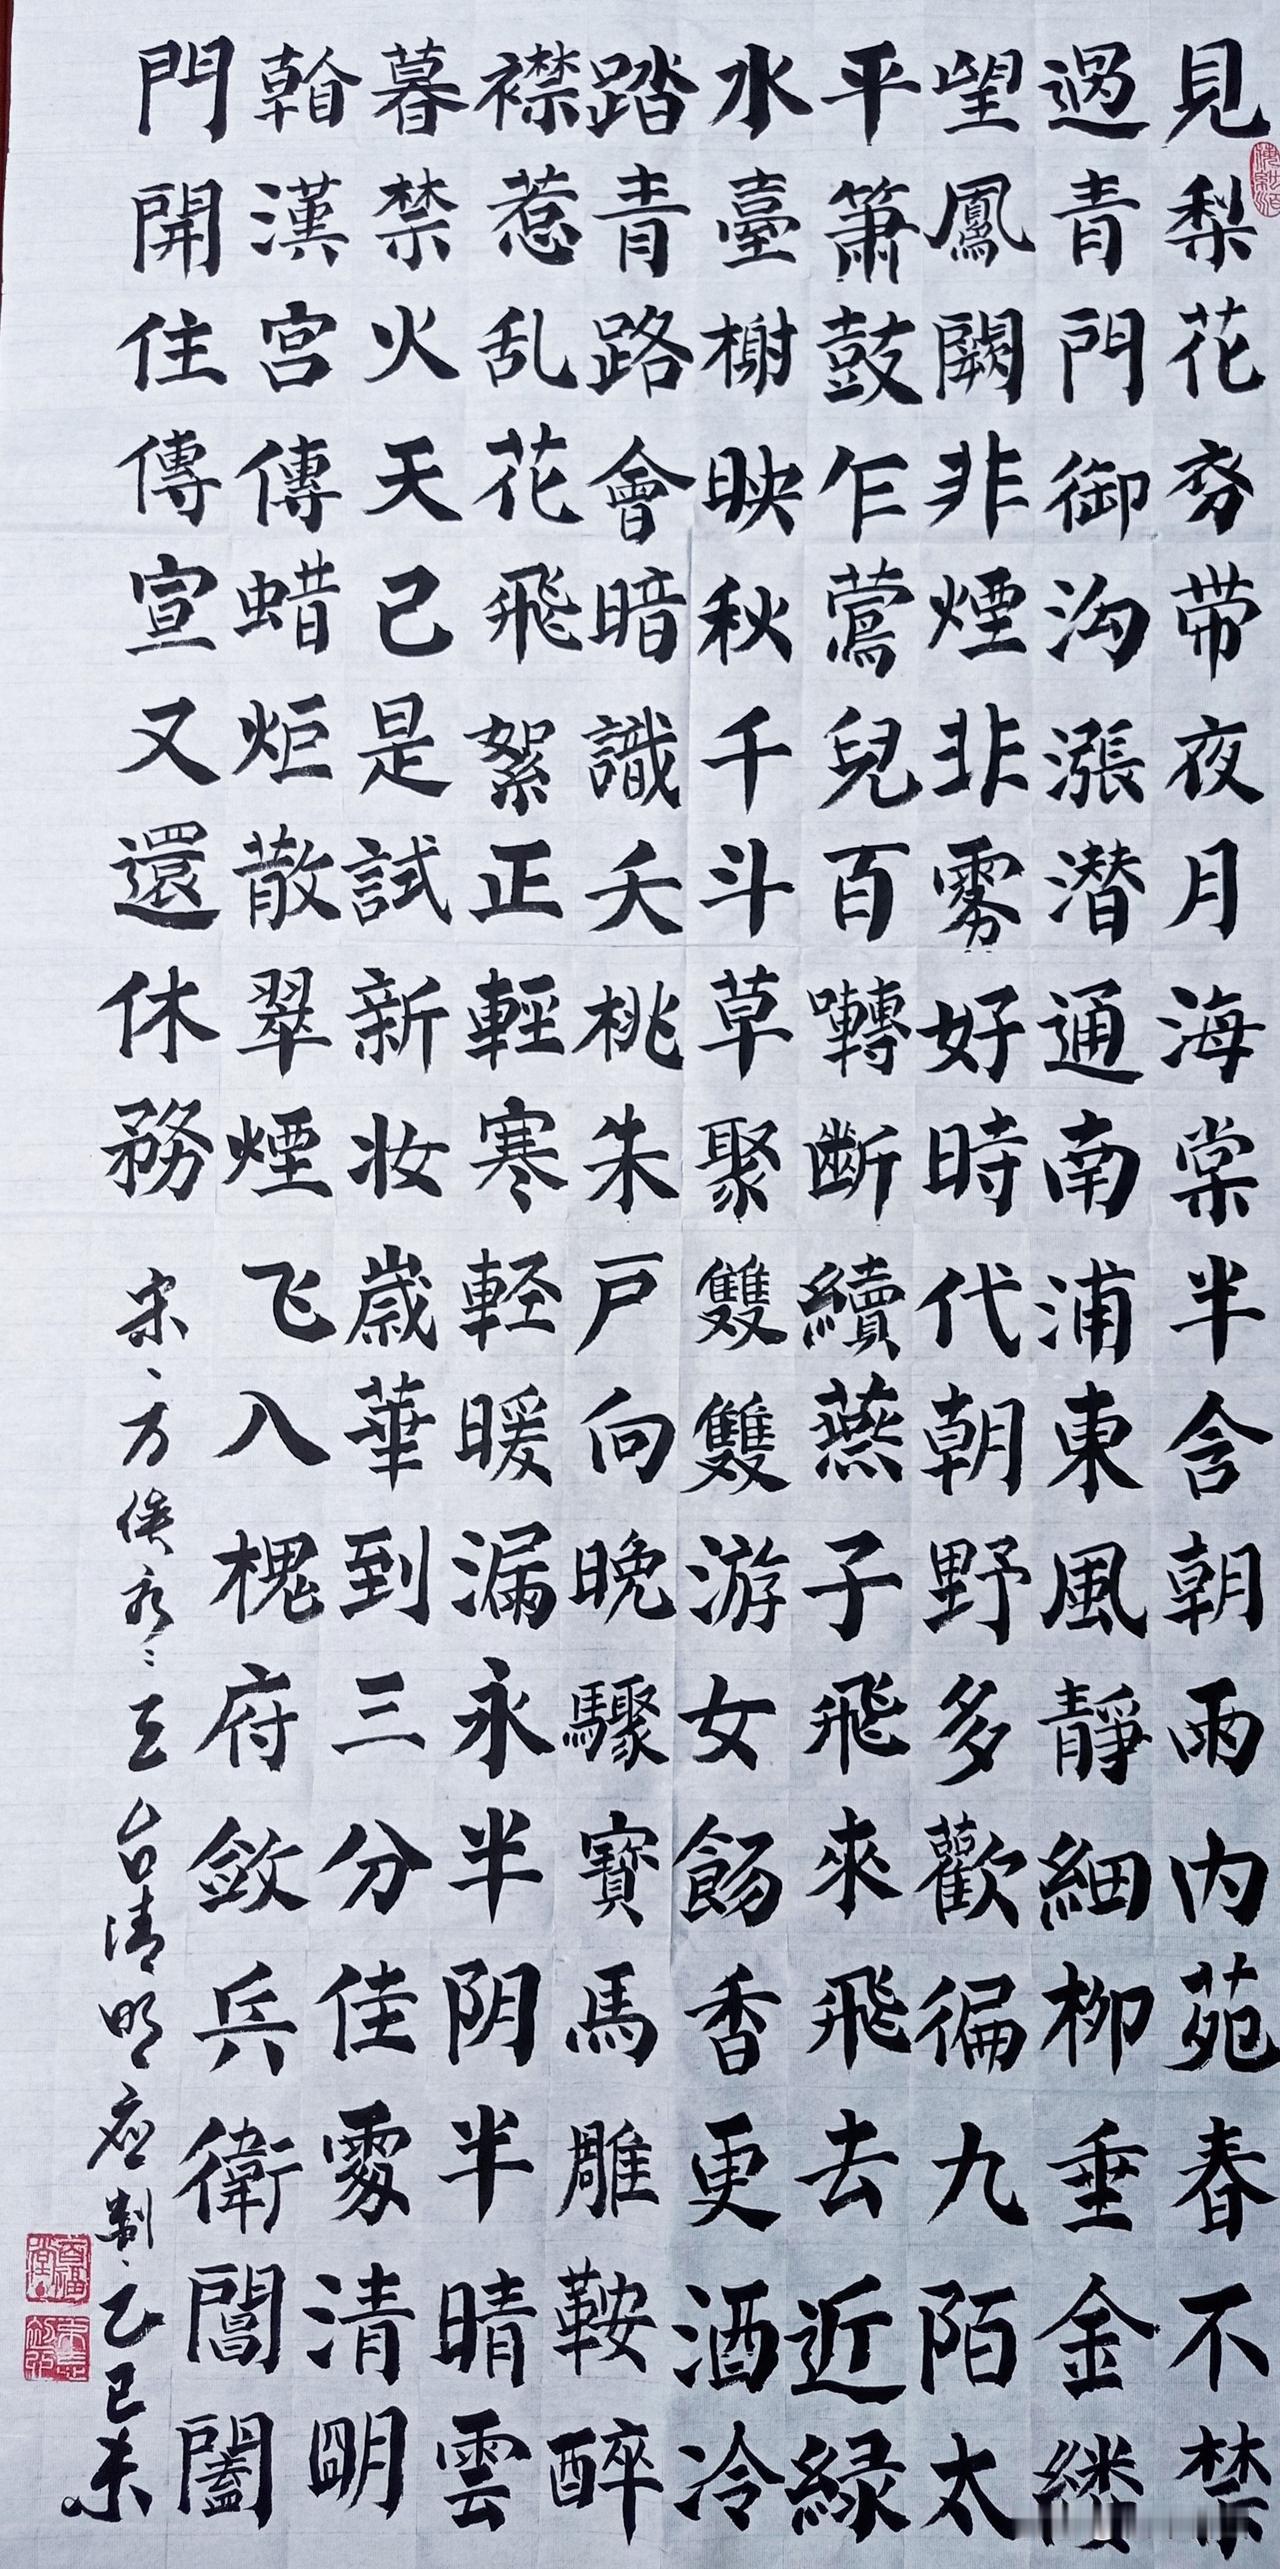 見梨花带夜月海棠半含朝雨内苑春不禁
過青門御沟漲潜通南浦東風靜細柳垂金缕
望鳳闕非煙非霧好時代朝野多歡徧九陌太
平簫鼓乍鶯兒百囀斷續燕子飛來飛去近緑
水臺榭映秋千斗草聚雙雙游女餳香更酒冷
踏青路會暗識夭桃朱戸向晚驟寶馬雕鞍醉
襟惹乱花飛絮正輕寒軽暖漏永半阴半晴雲
暮禁火天已是試新妆歲華到三分佳處清明
翰漢宫傳蜡炬散翠煙飞入槐府斂兵衛閶闔
門開住傳宣又還休務
宋、方俟永:三台清明應制、乙巳